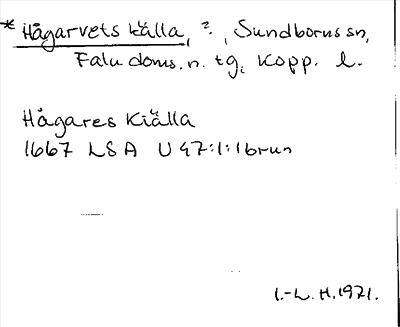 * Hågarvets källa, ?, Sundborns sn,
Falu doms. n. tg, Kopp. l.
Hågares Kiälla
1667 LSA U 47:1:1 brun
I.-L. H. 1971.